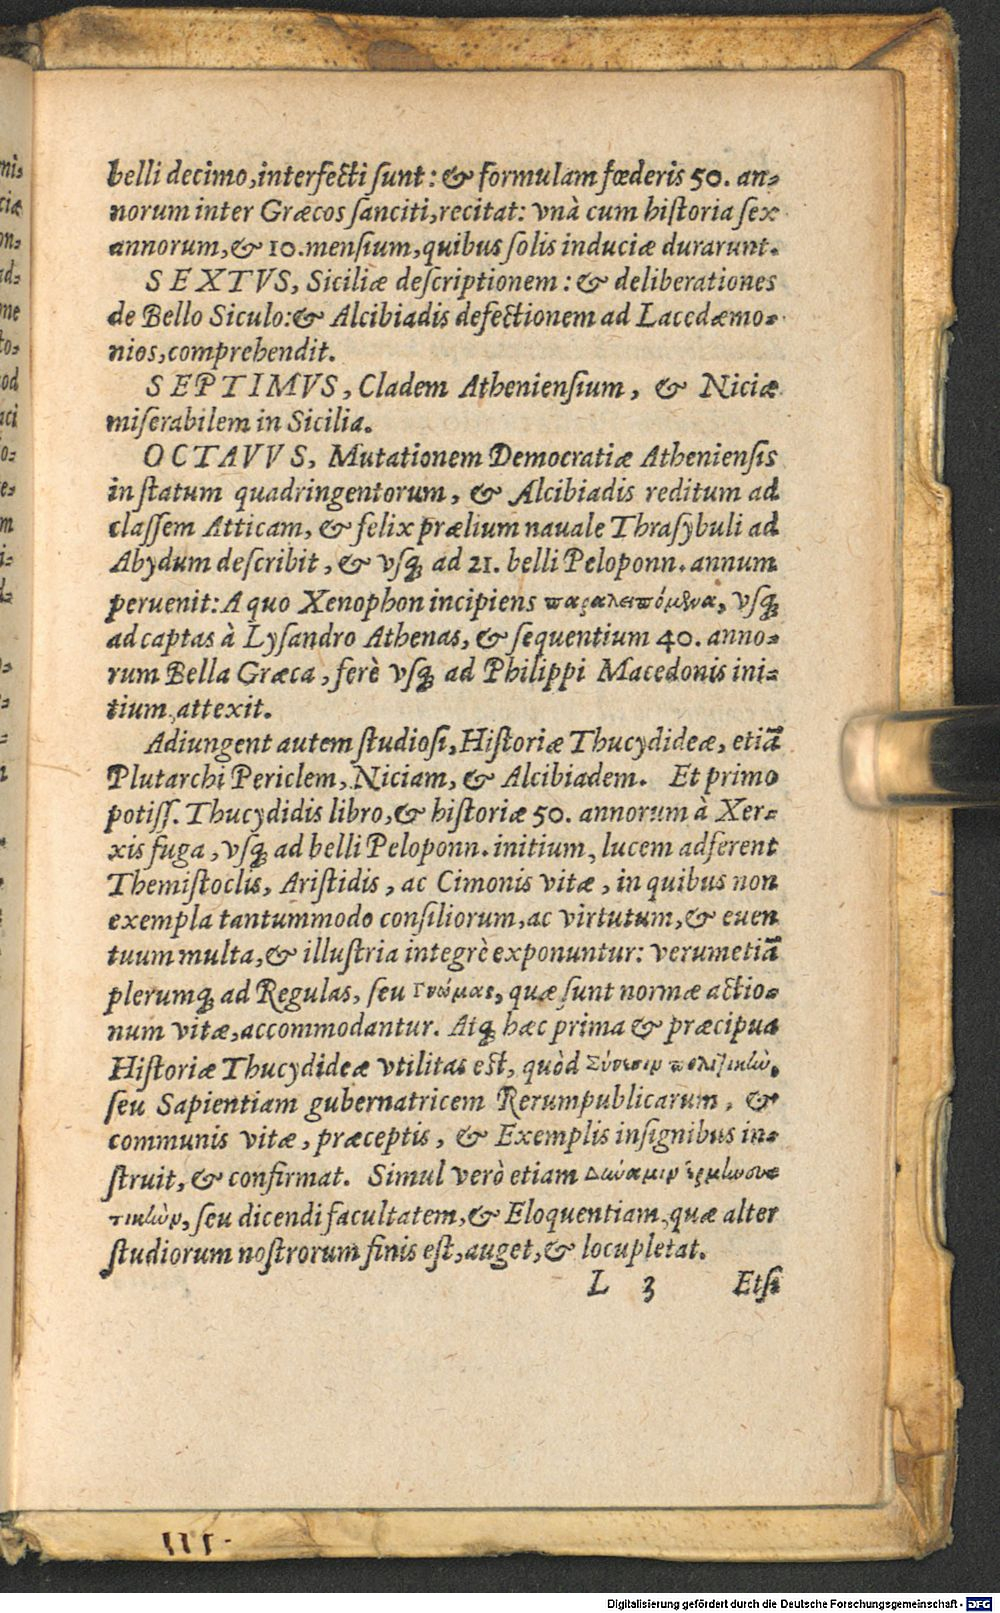 belli decimo, interfecti sunt: & formulam fœderis 50. an-
norum inter Græcos sanciti, recitat: vnà cum historia sex
annorum, & 10. mensium, quibus solis induciæ durarunt.
SEXTVS, Siciliæ descriptionem: & deliberationes
de Bello Siculo: & Alcibiadis defectionem ad Lacedæmo-
nios, comprehendit.
SEPTIMVS, Cladem Atheniensium, & Niciæ
miserabilem in Sicilia.
OCTAVVS, Mutationem Democratiæ Atheniensis
in statum quadringentorum, & Alcibiadis reditum ad
classem Atticam, & felix prælium nauale Thrasybuli ad
Abydum describit, & vsq; ad 21. belli Peloponn. annum
peruenit: A quo Xenophon incipiens παραλειπόμενα, vsq;
ad captas à Lysandro Athenas, & sequentium 40. anno-
rum Bella Græca, ferè vsq; ad Philippi Macedonis ini-
tium attexit.
Adiungent autem studiosi, Historiæ Thucydideæ, etiã
Plutarchi Periclem, Niciam, & Alcibiadem. Et primo
potiss. Thucydidis libro, & historiæ 50. annorum à Xer-
xis fuga, vsq; ad belli Peloponn. initium, lucem adferent
Themistoclis, Aristidis, ac Cimonis vitæ, in quibus non
exempla tantummodo consiliorum, ac virtutum, & euen
tuum multa, & illustria integrè exponuntur: verumetiã
plerumq; ad Regulas, seu Γνώμας, quæ sunt normæ actio-
num vitæ, accommodantur. Atq; hæc prima & præcipua
Historiæ Thucydideæ vtilitas est, quòd Σύνεσιν πολιτικὴν,
seu Sapientiam gubernatricem Rerumpublicarum, &
communis vitæ, præceptis, & Exemplis insignibus in-
struit, & confirmat. Simul verò etiam Δύναμιν ἑρμηνευ
τικὴν, seu dicendi facultatem, & Eloquentiam, quæ alter
studiorum nostrorum finis est, auget, & locupletat.
L 3 Etsi
Digitalisierung gefördert durch die Deutsche Forschungsgemeinschaft - DFG